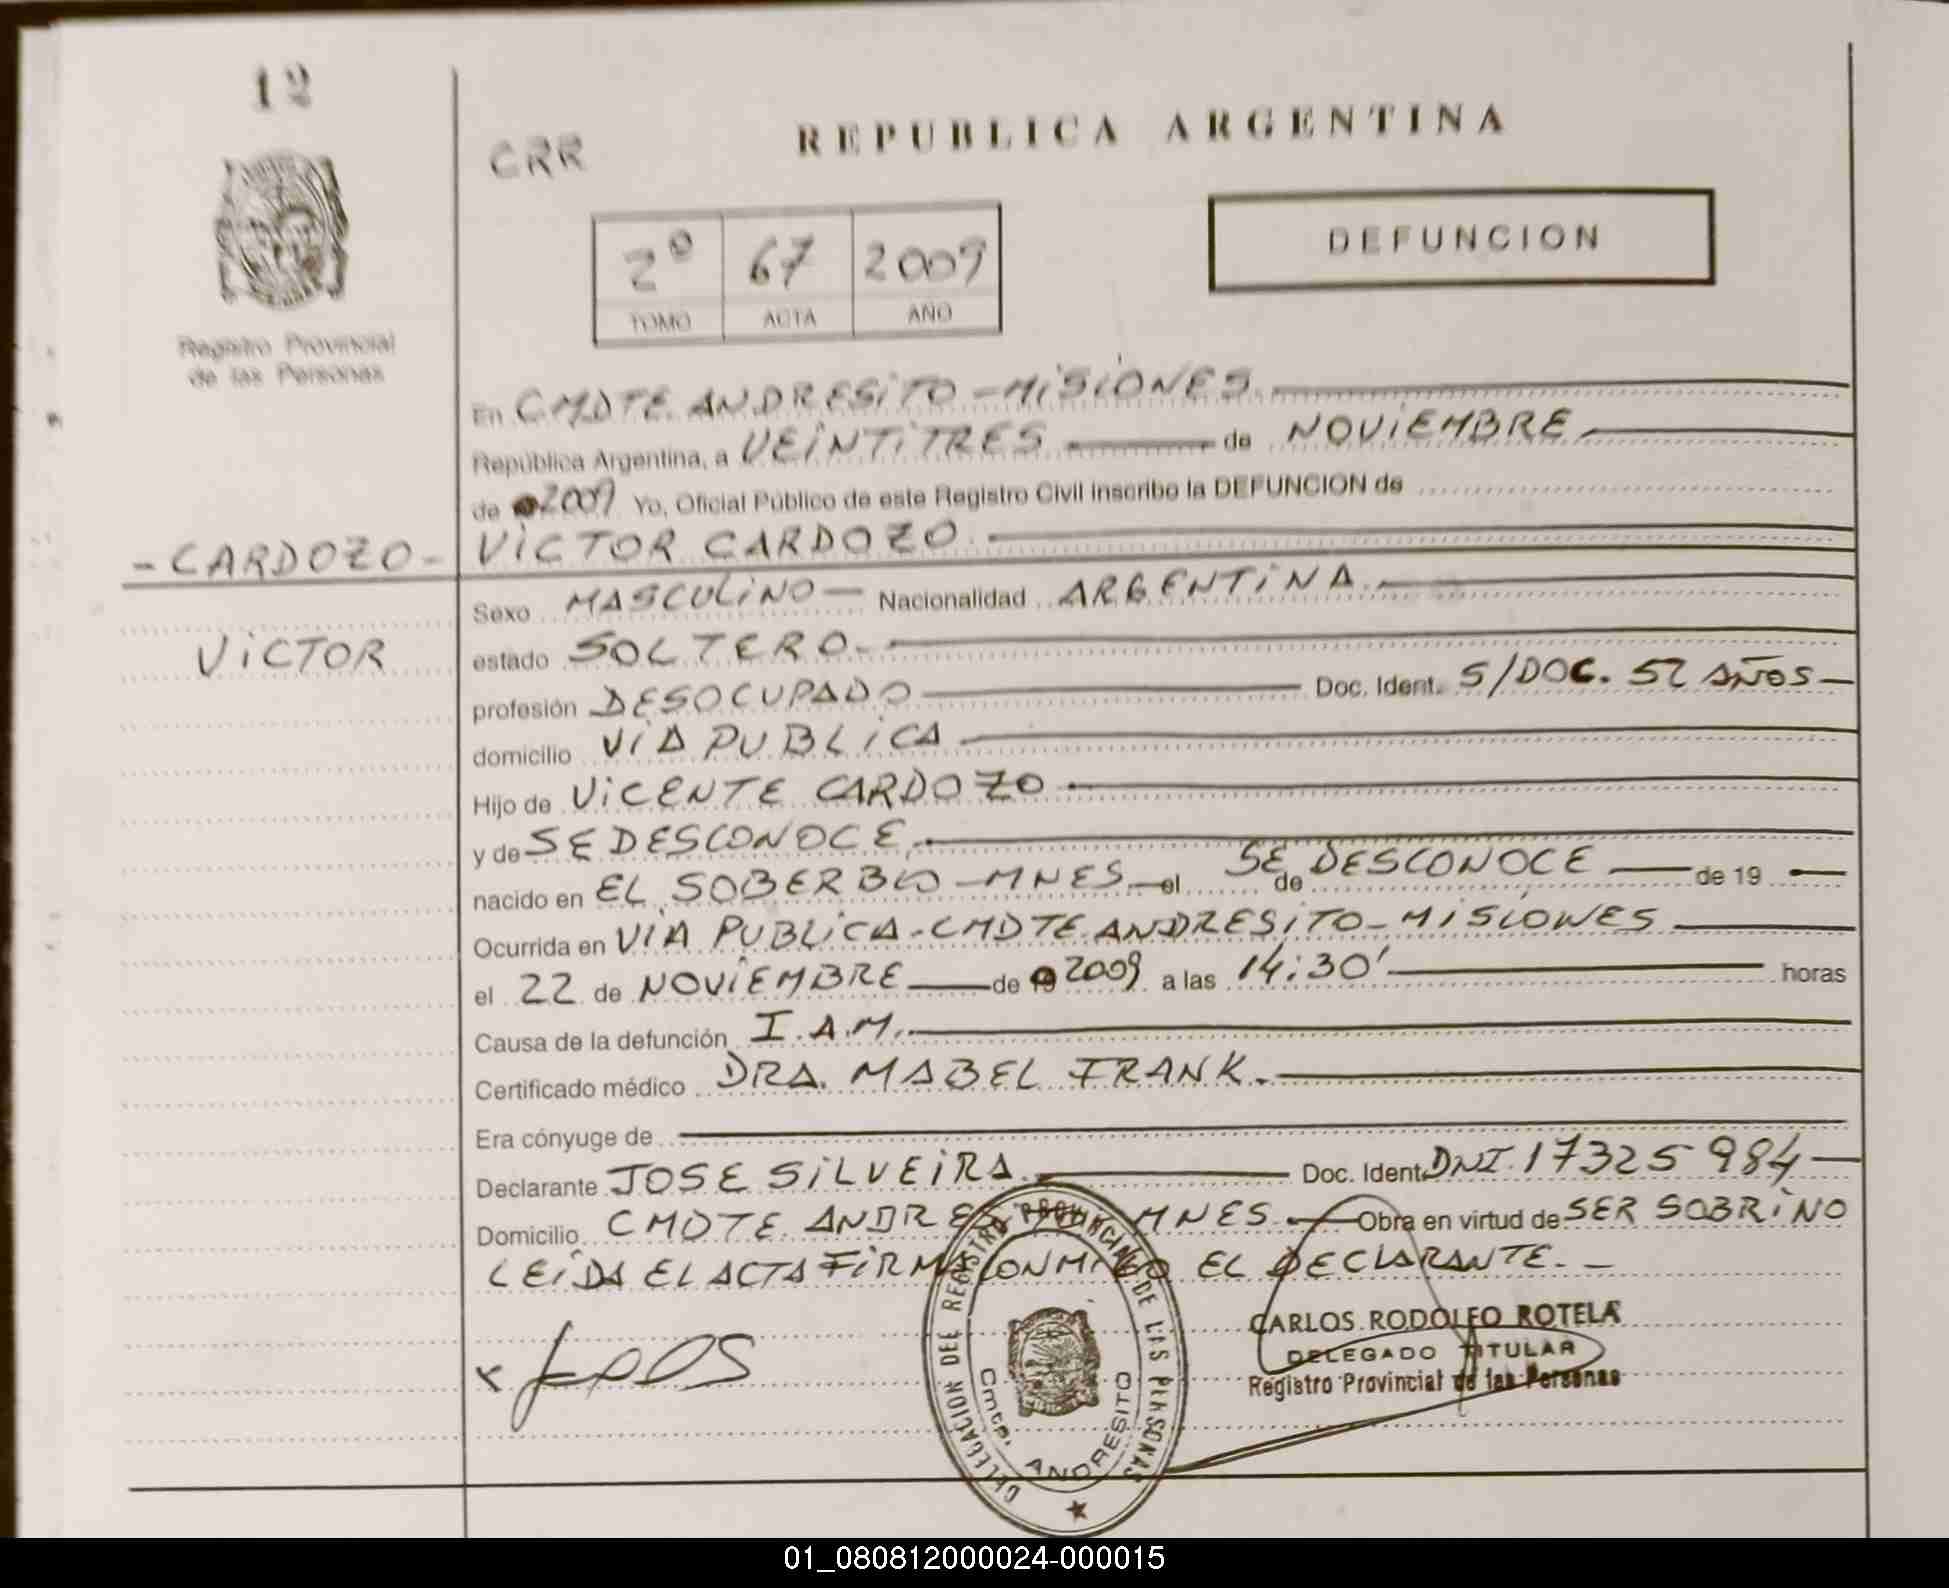 12
CRR
REPUBLICA ARGENTINA
2º 67 2009
TOMO ACTA AÑO
DEFUNCION
Registro Provincial
de las Personas
En CMDTE ANDRESITO - MISIONES
República Argentina, a VEINTITRES de NOVIEMBRE
de 2009 Yo, Oficial Público de este Registro Civil inscribo la DEFUNCION de
- CARDOZO - VICTOR CARDOZO
VICTOR
Sexo MASCULINO - Nacionalidad ARGENTINA
estado SOLTERO.
profesión DESOCUPADO Doc. Ident. S/DOC. 52 AÑOS -
domicilio VIA PUBLICA
Hijo de VICENTE CARDOZO
y de SE DESCONOCE
nacido en EL SOBERBIO - MNES - el SE DESCONOCE de de 19
Ocurrida en VIA PUBLICA - CMDTE ANDRESITO - MISIONES
el 22 de NOVIEMBRE de 2009 a las 14:30' horas
Causa de la defunción I.A.M.
Certificado médico DRA. MABEL FRANK.
Era cónyuge de
Declarante JOSE SILVEIRA Doc. Ident. DNI. 17325984
Domicilio CMDTE ANDRE MNES. Obra en virtud de SER SOBRINO
LEIDA EL ACTA FIRMA CONMIGO EL DECLARANTE. -
CARLOS RODOLFO ROTELA
DELEGADO TITULAR
Registro Provincial de las Personas
DELEGACION DEL REGISTRO PROVINCIAL DE LAS PERSONAS
Cmte. ANDRESITO
01_080812000024-000015